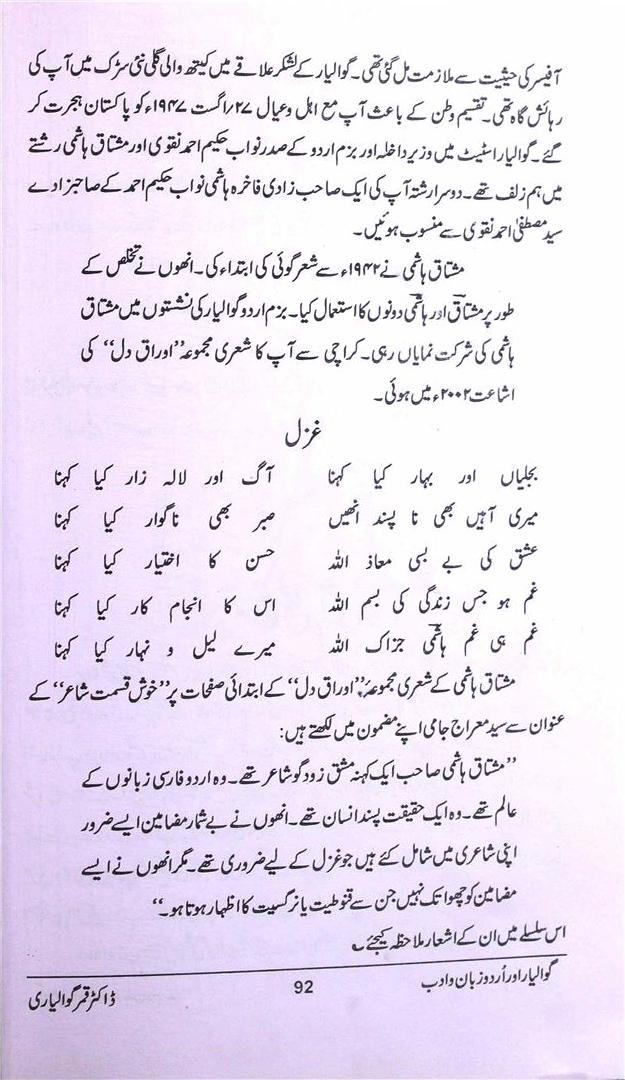 آفیسر کی حیثیت سے ملازمت مل گئی تھی۔ گوالیار کے لشکر علاقے میں کیتھ والی گلی نئی سڑک میں آپ کی
رہائش گاہ تھی۔ تقسیم وطن کے باعث آپ مع اہل و عیال ۲۷/اگست ۱۹۴۷ء کو پاکستان ہجرت کر
گئے۔ گوالیار اسٹیٹ میں وزیر داخلہ اور بزم اردو کے صدر نواب حکیم احمد نقوی اور مشتاق ہاشمی رشتے
میں ہم زلف تھے۔ دوسرا رشتہ آپ کی ایک صاحب زادی فاخرہ ہاشمی نواب حکیم احمد کے صاحبزادے
سید مصطفیٰ احمد نقوی سے منسوب ہوئیں۔
مشتاق ہاشمی نے ۱۹۴۲ء سے شعر گوئی کی ابتداء کی۔ انھوں نے تخلص کے
طور پر مشتاقؔ اور ہاشمیؔ دونوں کا استعمال کیا۔ بزم اردو گوالیار کی نشستوں میں مشتاق
ہاشمی کی شرکت نمایاں رہی۔ کراچی سے آپ کا شعری مجموعہ ”اوراق دل“ کی
اشاعت ۲۰۰۲ء میں ہوئی۔
غزل
بجلیاں اور بہار کیا کہنا آگ اور لالہ زار کیا کہنا
میری آہیں بھی نا پسند انھیں صبر بھی ناگوار کیا کہنا
عشق کی بے بسی معاذ اللہ حسن کا اختیار کیا کہنا
غم ہو جس زندگی کی بسم اللہ اس کا انجام کار کیا کہنا
غم ہی غم ہاشمیؔ جزاک اللہ میرے لیل و نہار کیا کہنا
مشتاق ہاشمی کے شعری مجموعہ ”اوراق دل“ کے ابتدائی صفحات پر ”خوش قسمت شاعر“ کے
عنوان سے سید معراج جامی اپنے مضمون میں لکھتے ہیں:
”مشتاق ہاشمی صاحب ایک کہنہ مشق زود گو شاعر تھے۔ وہ اردو فارسی زبانوں کے
عالم تھے۔ وہ ایک حقیقت پسند انسان تھے۔ انھوں نے بے شمار مضامین ایسے ضرور
اپنی شاعری میں شامل کئے ہیں جو غزل کے لیے ضروری تھے۔ مگر انھوں نے ایسے
مضامین کو چھوا تک نہیں جن سے قنوطیت یا نرگسیت کا اظہار ہوتا ہو۔“
اس سلسلے میں ان کے اشعار ملاحظہ کیجئے۔
گوالیار اور اُردو زبان و ادب 92 ڈاکٹر قمر گوالیاری